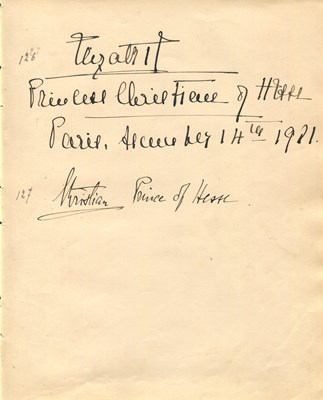 126 Elizabeth
Princess Christian of Hesse
Paris, December 14th 1921.
127 Christian Prince of Hesse